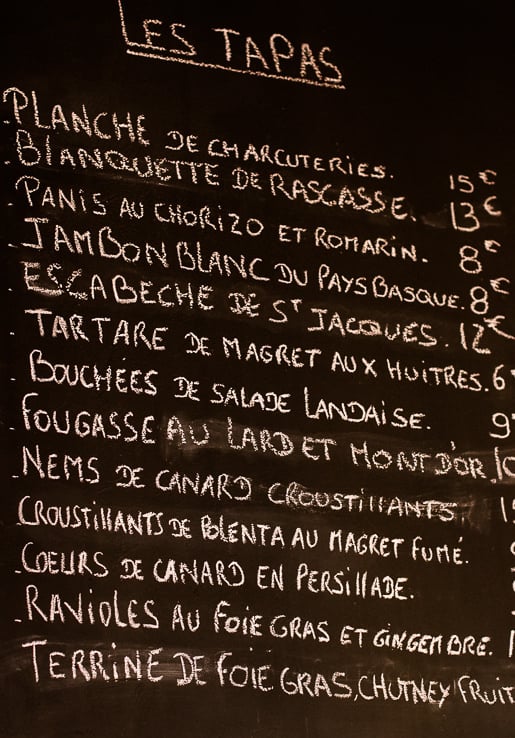 LES TAPAS
.PLANCHE DE CHARCUTERIES. 15€
.BlANQUETTE DE RASCASSE. 13€
.PANIS AU CHORIZO ET ROMARIN. 8€
.JAMBON BLANC DU PAYS BASQUE. 8€
.ESCABECHE DE ST JACQUES. 12€
.TARTARE DE MAGRET AUX HUITRES. 6
.BOUCHÉES DE SALADE LANDAISE. 9
.FOUGASSE AU LARD ET MONT D'OR. 10
.NEMS DE CANARD CROUSTILLANTS.
.CROUSTILLANTS DE POLENTA AU MAGRET FUMÉ.
.COEURS DE CANARD EN PERSILLADE.
.RAVIOLES AU FOIE GRAS ET GINGEMBRE.
.TERRINE DE FOIE GRAS, CHUTNEY FRUIT